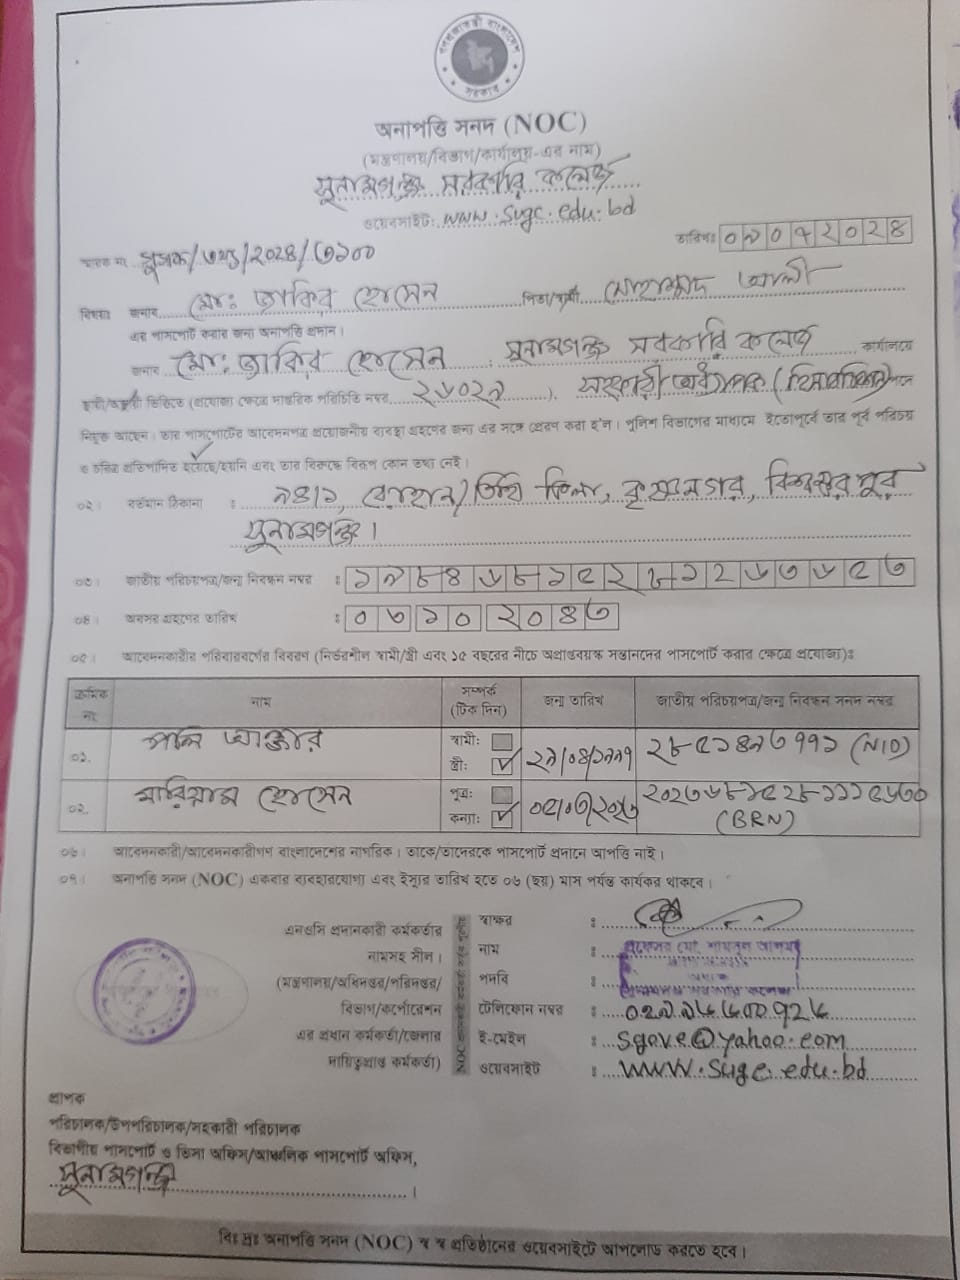 গণপ্রজাতন্ত্রী বাংলাদেশ সরকার
অনাপত্তি সনদ (NOC)
(মন্ত্রণালয়/বিভাগ/কার্যালয়-এর নাম)
সুনামগঞ্জ সরকারি কলেজ
ওয়েবসাইট: www.sugc.edu.bd
তারিখ: ০৯০৭২০২৪
স্মারক নং সুসক/৩৭৬/২০২৪/৩১০০
বিষয়ঃ জনাব মো: জাকির হোসেন পিতা/স্বামী মোহাম্মদ আলী
এর পাসপোর্ট করার জন্য অনাপত্তি প্রদান।
জনাব মো: জাকির হোসেন, সুনামগঞ্জ সরকারি কলেজ কার্যালয়ে
স্থায়ী/অস্থায়ী ভিত্তিতে (প্রযোজ্য ক্ষেত্রে দাপ্তরিক পরিচিতি নম্বর ২৬০২৯), সহকারী অধ্যাপক (হিসাববিজ্ঞান) পদে
নিযুক্ত আছেন। তার পাসপোর্টের আবেদনপত্র প্রয়োজনীয় ব্যবস্থা গ্রহণের জন্য এর সঙ্গে প্রেরণ করা হ'ল। পুলিশ বিভাগের মাধ্যমে ইতোপূর্বে তার পূর্ব পরিচয়
ও চরিত্র প্রতিপাদিত হয়েছে/হয়নি এবং তার বিরুদ্ধে বিরূপ কোন তথ্য নেই।
০২। বর্তমান ঠিকানা : ৯৪/১, রোহান/তিথি ভিলা, কৃষ্ণনগর, বিশ্বম্ভরপুর
সুনামগঞ্জ।
০৩। জাতীয় পরিচয়পত্র/জন্ম নিবন্ধন নম্বর : ১৯৮৪৬৮১৫২৮১২৬৩৬৫৩
০৪। অবসর গ্রহণের তারিখ : ০৩১০২০৪৩
০৫। আবেদনকারীর পরিবারবর্গের বিবরণ (নির্ভরশীল স্বামী/স্ত্রী এবং ১৫ বছরের নীচে অপ্রাপ্তবয়স্ক সন্তানদের পাসপোর্ট করার ক্ষেত্রে প্রযোজ্য)ঃ
ক্রমিক নং নাম সম্পর্ক (টিক দিন) জন্ম তারিখ জাতীয় পরিচয়পত্র/জন্ম নিবন্ধন সনদ নম্বর
০১. পলি আক্তার স্বামী: স্ত্রী: ২৯/০৪/১৯৯৭ ২৮৫১৪৯৩৭৭১ (NID)
০২. মারিয়াম হোসেন পুত্র: কন্যা: ০৫/০৩/২০২৩ ২০২৩৬৮১৫২৮১১১৫৬৩০
(BRN)
০৬। আবেদনকারী/আবেদনকারীগণ বাংলাদেশের নাগরিক। তাকে/তাদেরকে পাসপোর্ট প্রদানে আপত্তি নাই।
০৭। অনাপত্তি সনদ (NOC) একবার ব্যবহারযোগ্য এবং ইস্যুর তারিখ হতে ০৬ (ছয়) মাস পর্যন্ত কার্যকর থাকবে।
এনওসি প্রদানকারী কর্মকর্তার
নামসহ সীল।
(মন্ত্রণালয়/অধিদপ্তর/পরিদপ্তর/
বিভাগ/কর্পোরেশন
এর প্রধান কর্মকর্তা/জেলার
দায়িত্বপ্রাপ্ত কর্মকর্তা)
স্বাক্ষর :
নাম : প্রফেসর মো.
পদবি : সুনামগঞ্জ সরকারি কলেজ
টেলিফোন নম্বর :
ই-মেইল : sgove@yahoo.com
ওয়েবসাইট : www.sugc.edu.bd
প্রাপক
পরিচালক/উপপরিচালক/সহকারী পরিচালক
বিভাগীয় পাসপোর্ট ও ভিসা অফিস/আঞ্চলিক পাসপোর্ট অফিস,
সুনামগঞ্জ।
বিঃ দ্রঃ অনাপত্তি সনদ (NOC) স্ব স্ব প্রতিষ্ঠানের ওয়েবসাইটে আপলোড করতে হবে।